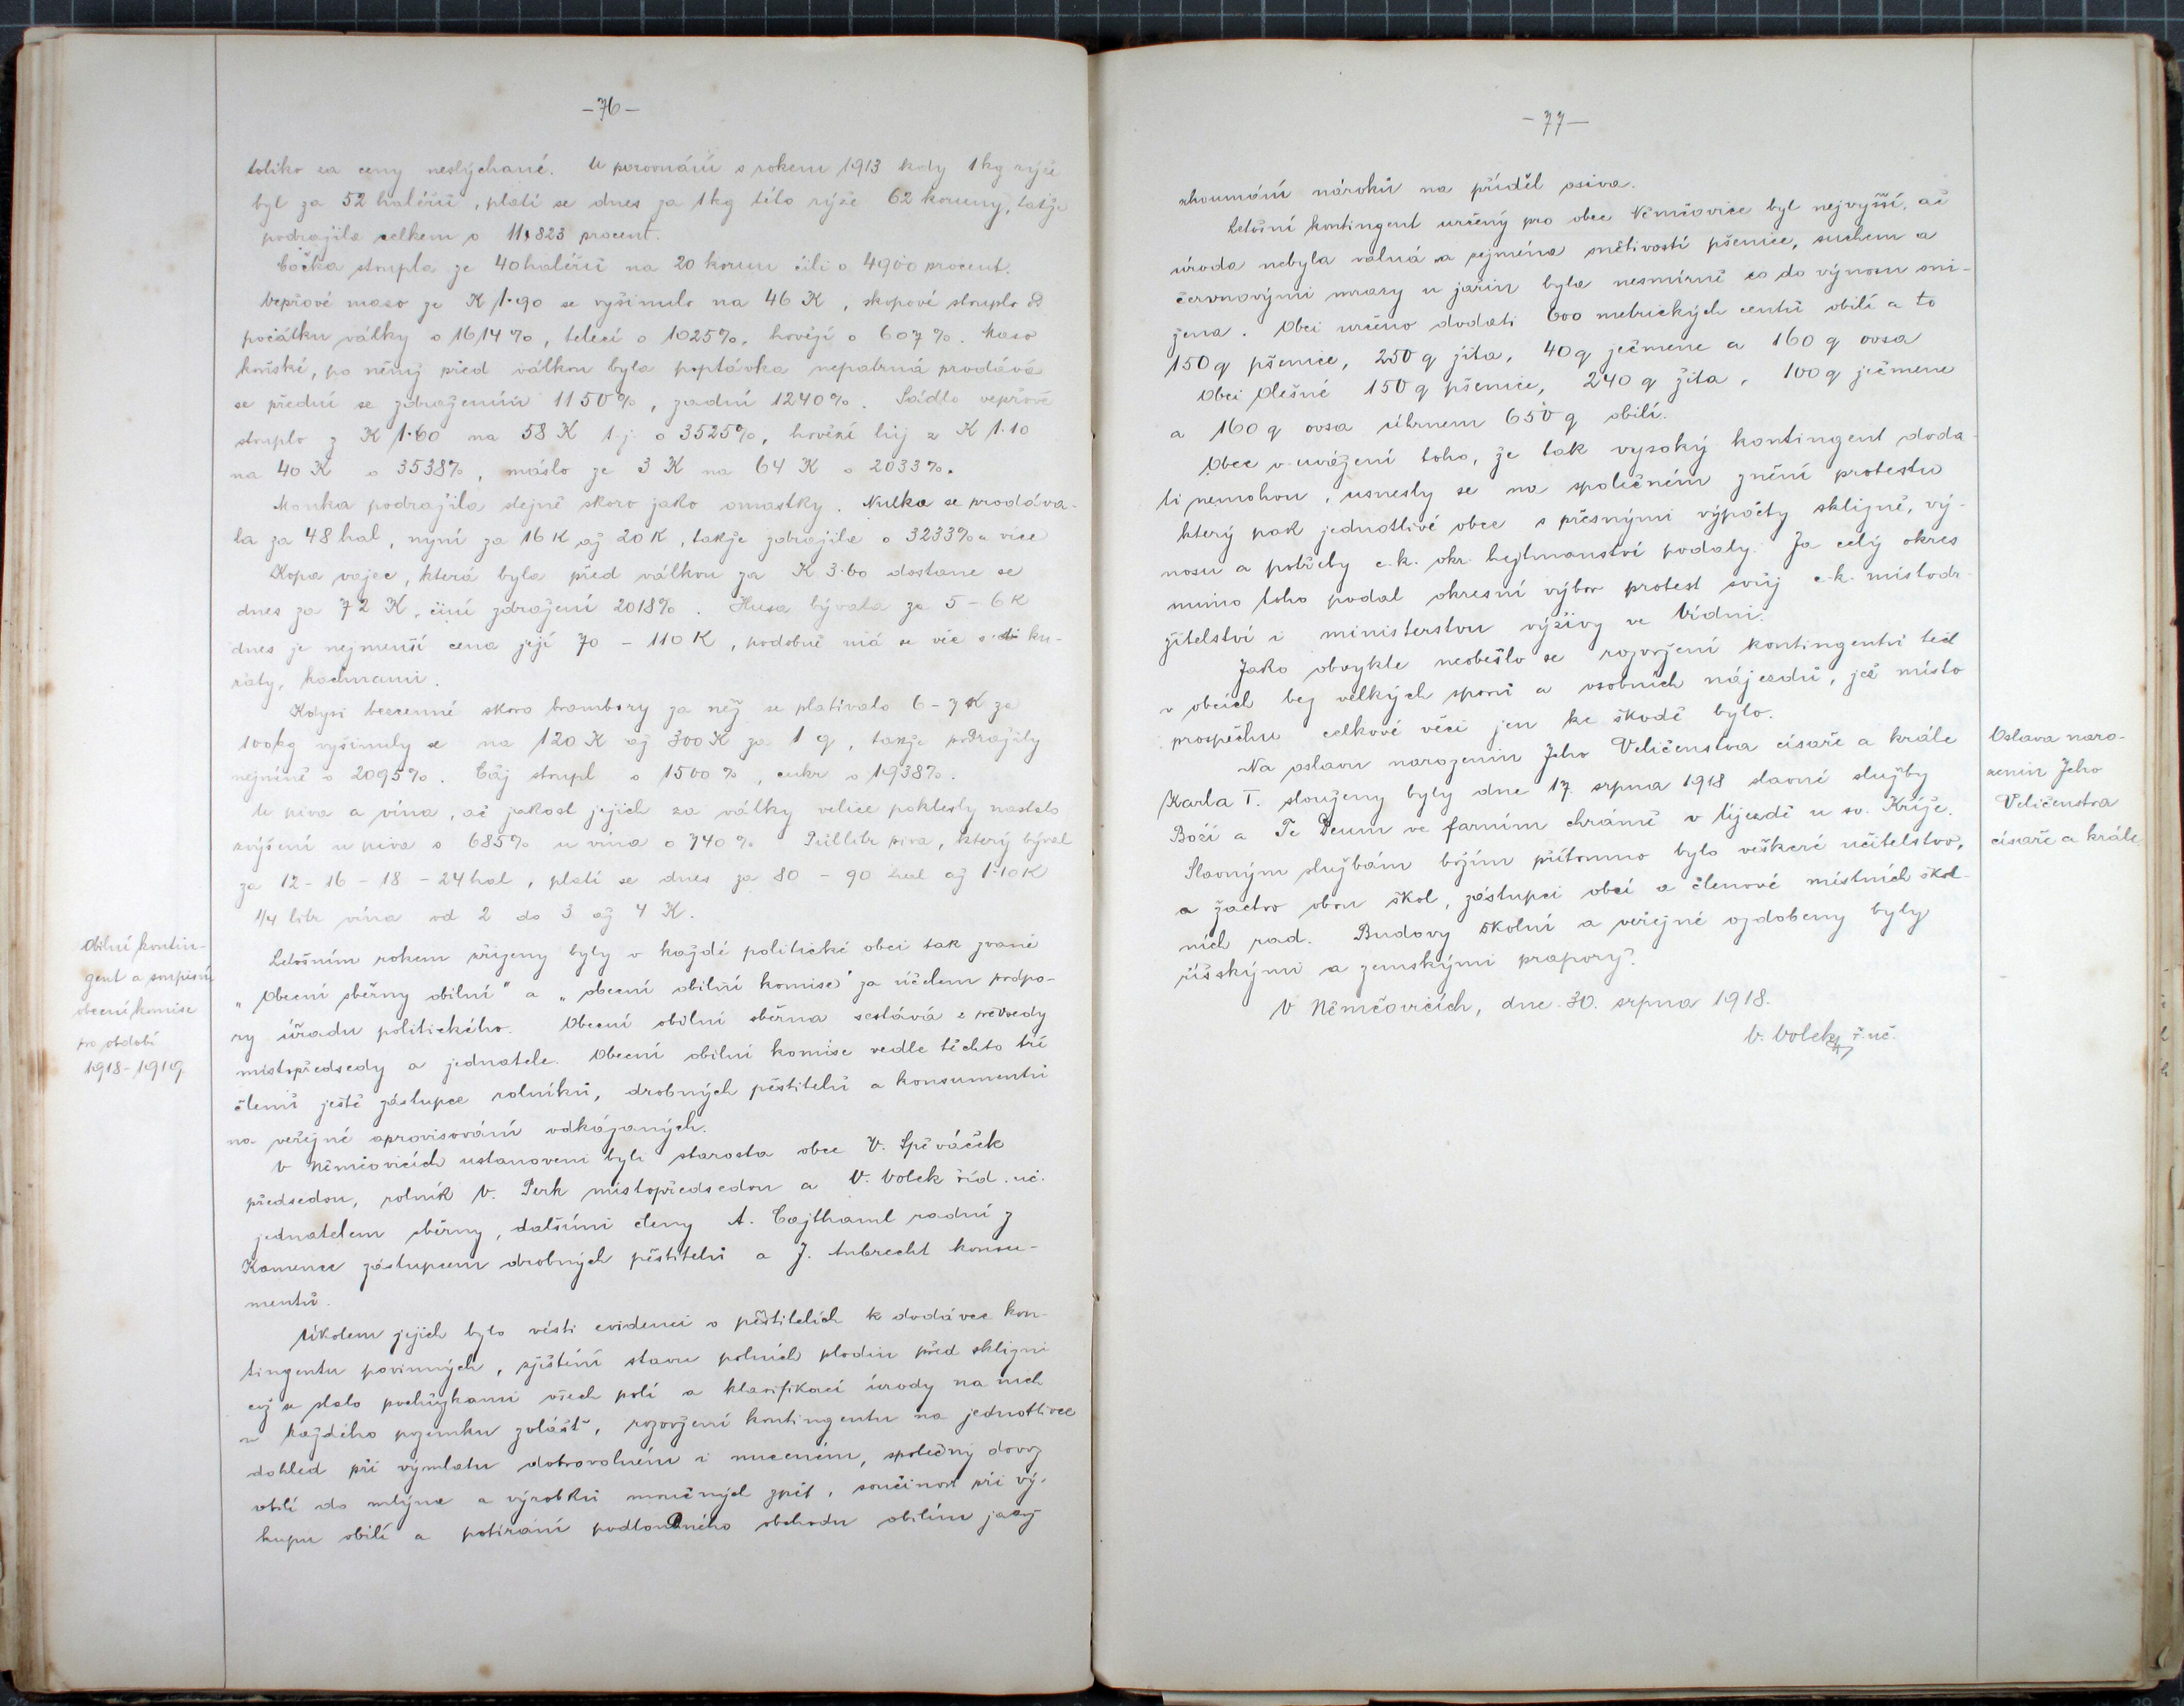 -76-
toliko za ceny neslýchané. U porovnání s rokem 1913 kdy 1 kg rýže
byl za 52 haléřů, platí se dnes za 1 kg této rýže 62 koruny, takže
podražila celkem o 11,823 procent.
Čočka stoupla ze 40 haléřů na 20 korun čili o 4900 procent.
Vepřové maso ze K 1·90 se vyšinulo na 46 K, skopové stouplo od
počátku války o 1614%, telecí o 1025%, hovězí o 607%. Maso
koňské, po němž před válkou byla poptávka nepatrná prodává
se přední se zdražením 1150%, zadní 1240%. Sádlo vepřové
stouplo z K 1·60 na 58 K t.j. o 3525%, hovězí lůj z K 1·10
na 40 K o 3538%, máslo ze 3 K na 64 K o 2033%.
Mouka podražila stejně skoro jako omastky. Nulka se prodáva-
la za 48 hal, nyní za 16 K až 20 K, takže zdražila o 3233% a více
Kopa vajec, která byla před válkou za K 3·60 dostane se
dnes za 72 K, činí zdražení 2018%. Husa bývala za 5 – 6 K
dnes je nejmenší cena její 70 – 110 K, podobně má se věc s ku-
řaty, kachnami.
Kdysi bezcenné skoro brambory za něž se platívalo 6 – 7 K za
100 kg vyšinuly se na 120 K až 300 K za 1 q, takže podražily
nejméně o 2095%. Čaj stoupl o 1500%, cukr o 1938%.
U piva a vína, ač jakost jejich za války velice poklesly nastalo
zvýšení u piva o 685% u vína o 740% Půllitr piva, který býval
za 12 - 16 - 18 - 24 hal, platí se dnes za 80 – 90 hal až 1·10 K
1/4 litr vína od 2 do 3 až 4 K.
Obilní kontin-
gent a soupisní
obecní komise
pro období
1918-1919
Letošním rokem zřízeny byly v každé politické obci tak zvané
„Obecní sběrny obilní" a „obecní obilní komise" za účelem podpo-
ry úřadu politického. Obecní obilní sběrna sestává z předsedy
místopředsedy a jednatele. Obecní obilní komise vedle těchto tří
členů ještě zástupce rolníků, drobných pěstitelů a konsumentů
na veřejné aprovisování odkázaných.
V Němčovicích ustanoveni byli starosta obce V. Spěváček
předsedou, rolník V. Terk místopředsedou a V. Volek říd. uč.
jednatelem sběrny, dalšími členy A. Cajthaml radní z
Kamence zástupcem drobných pěstitelů a J. Aubrecht konsu-
mentů.
Úkolem jejich bylo vésti evidenci o pěstitelích k dodávce kon-
tingentu povinných, zjištění stavu polních plodin před sklizní
což se stalo pochůzkami všech polí a klasifikací úrody na nich
u každého pozemku zvlášť, rozvržení kontingentu na jednotlivce
dohled při výmlatu dobrovolném i nuceném, společný dovoz
obilí do mlýna a výrobků moučných zpět, součinnost při vý-
kupu obilí a potírání podloudného obchodu obilím jakož
-77-
zkoumání nároků na příděl osiva.
Letošní kontingent určený pro obec Němčovice byl nejvyšší, ač
úroda nebyla valná a zejména snětivostí pšenice, suchem a
červnovými mrazy u jařin byla nesmírně co do výnosu sní-
žena. Obci určeno dodati 600 metrických centů obilí a to
150 q pšenice, 250 q žita, 40 q ječmene a 160 q ovsa
Obci Olešné 150 q pšenice, 240 q žita, 100 q ječmene
a 160 q ovsa úhrnem 650 q obilí.
Obce v uvážení toho, že tak vysoký kontingent doda-
ti nemohou, usnesly se na společném znění protestu
který pak jednotlivé obce s přesnými výpočty sklizně, vý-
nosu a potřeby c.k. okr. hejtmanství podaly. Za celý okres
mimo toho podal okresní výbor protest svůj c.k. místodr-
žitelství i ministerstvu výživy ve Vídni.
Jako obvykle neobešlo se rozvržení kontingentů též
v obcích bez velkých sporů a osobních nájezdů, jež místo
prospěchu celkové věci jen ke škodě bylo.
Oslava naro-
zenin Jeho
Veličenstva
císaře a krále
Na oslavu narozenin Jeho Veličenstva císaře a krále
Karla I. slouženy byly dne 17. srpna 1918 slavné služby
Boží a Te Deum ve farním chrámě v Újezdě u sv. Kříže.
Slavným službám božím přítomno bylo veškeré učitelstvo,
a žactvo obou škol, zástupci obcí a členové místních škol-
ních rad. Budovy školní a veřejné ozdobeny byly
říšskými a zemskými prapory.
V Němčovicích, dne 30. srpna 1918.
V. Volek ř. uč.